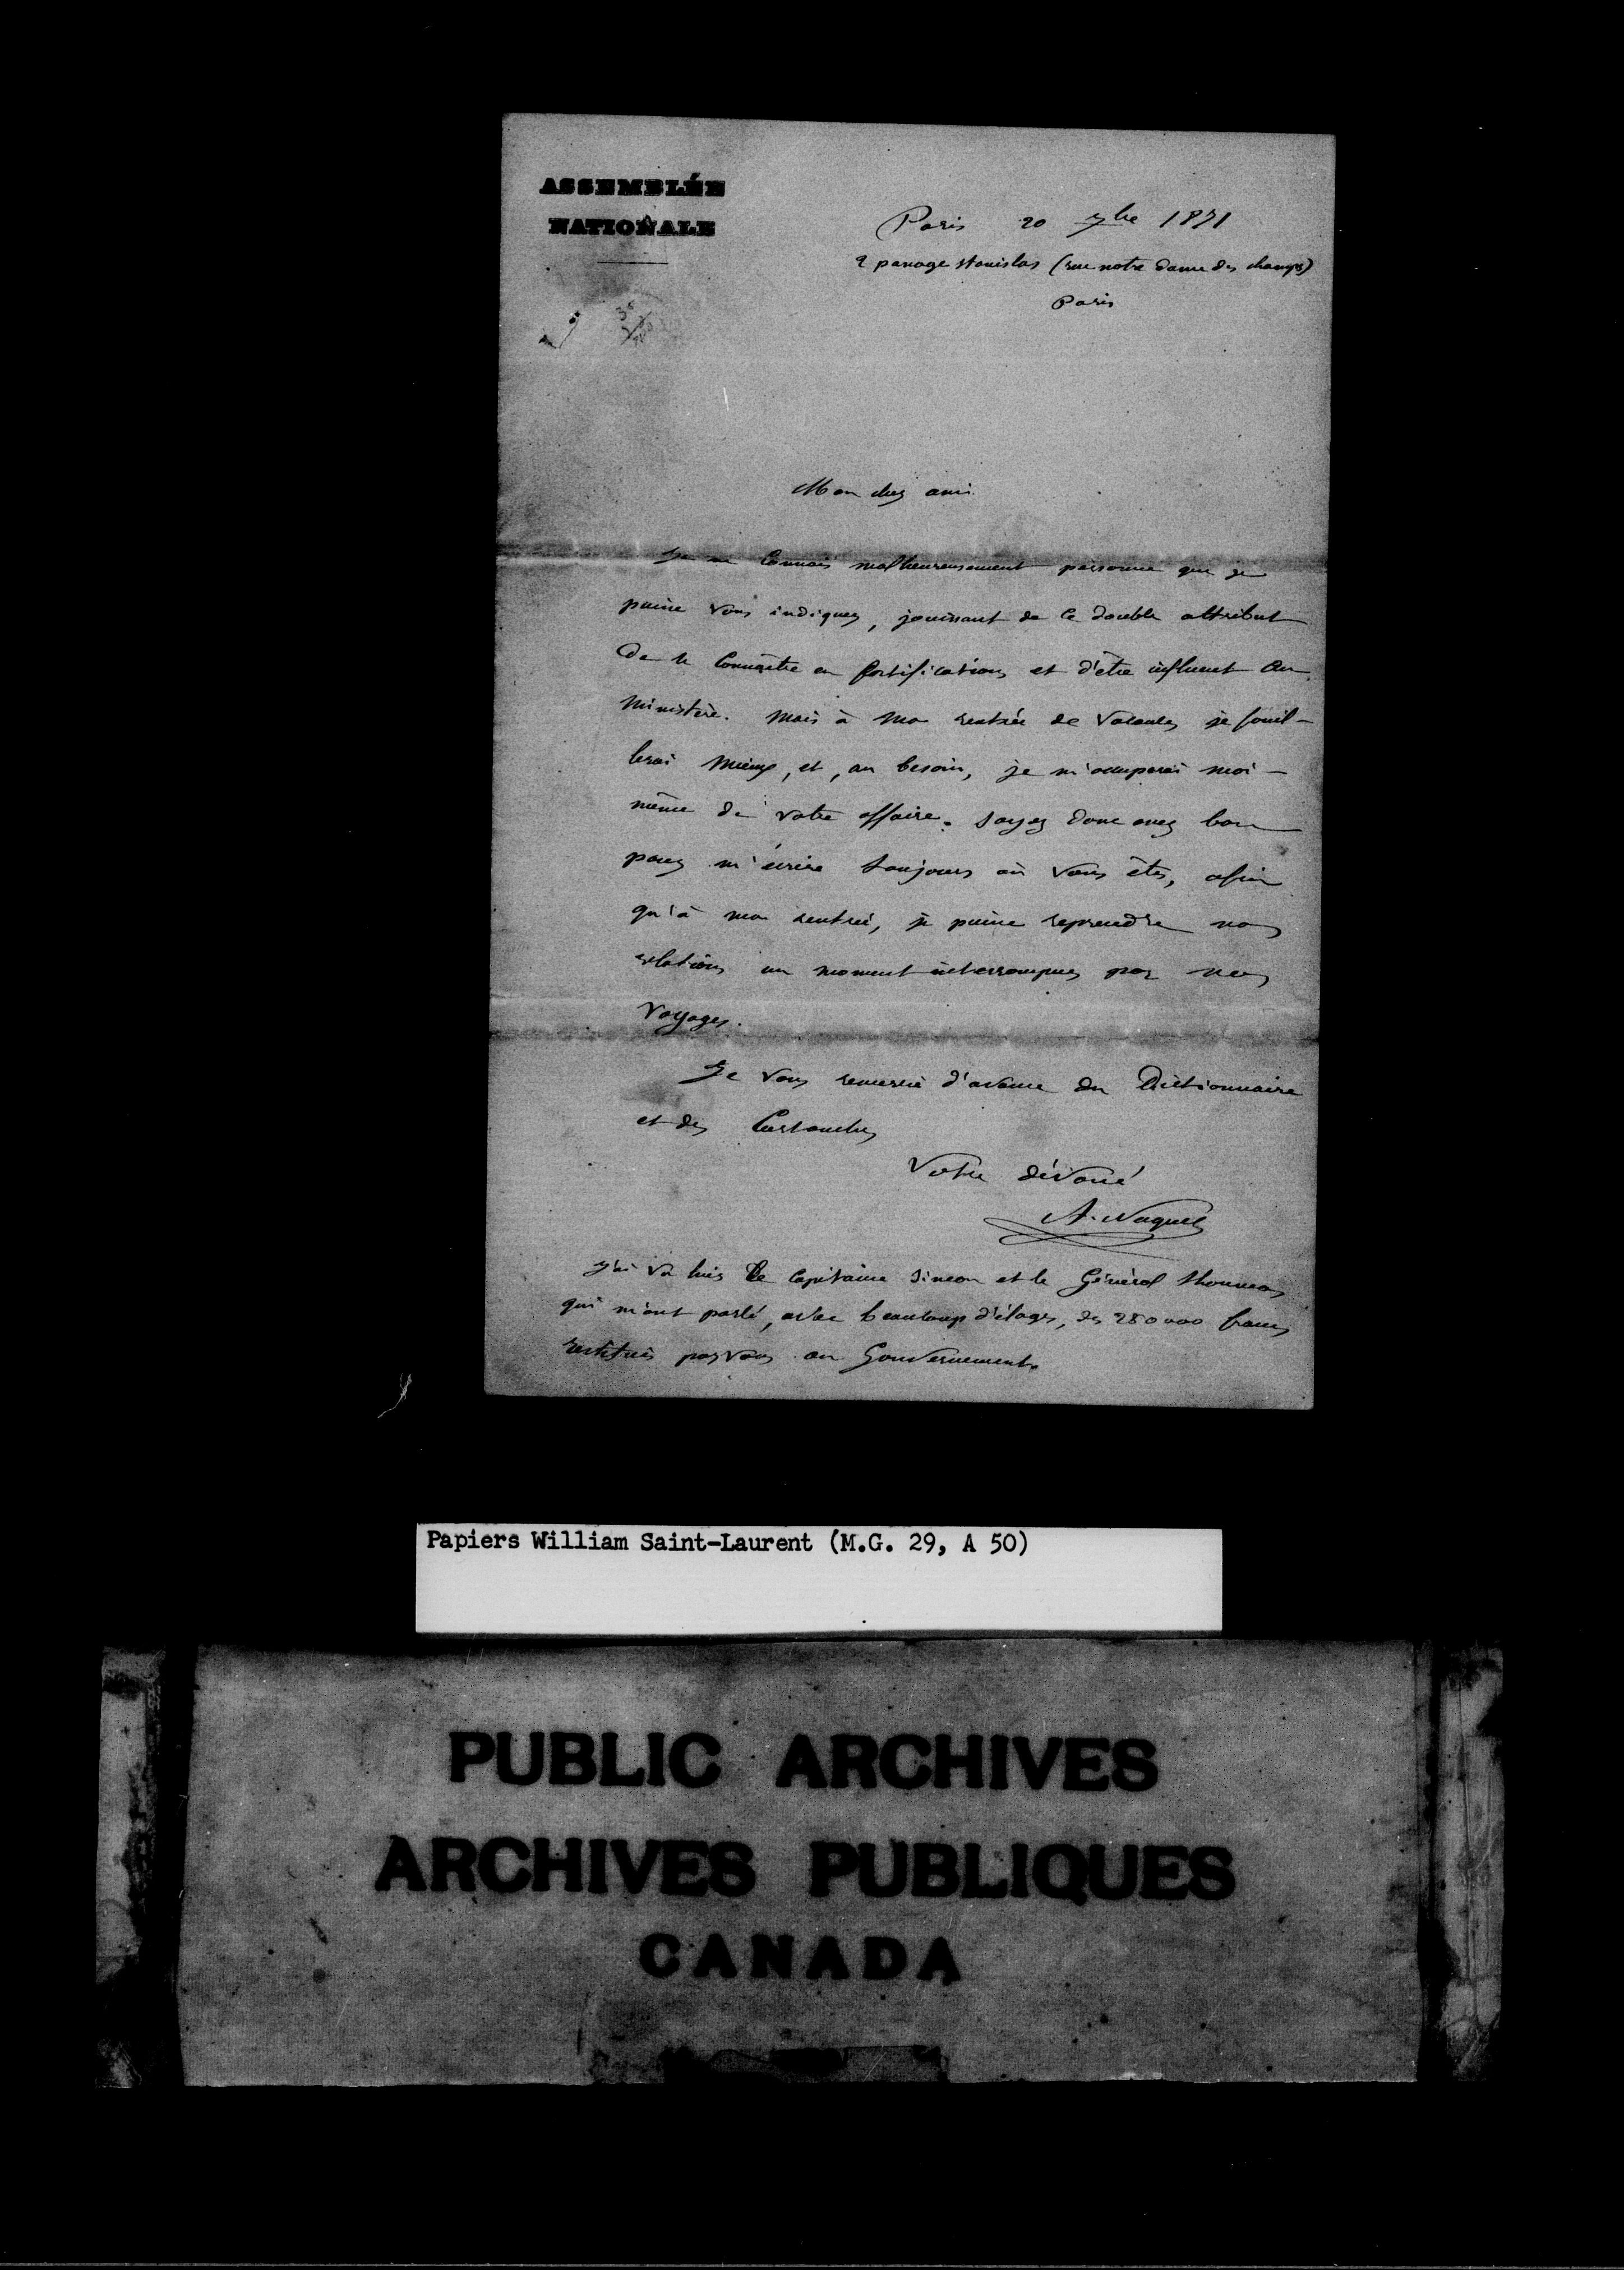 ASSEMBLÉE
NATIONALE
Paris 20 7bre 1871
2 passage stanislas (rue notre dame des champs)
Paris
Mon cher ami
Je ne Connais malheureusement personne que je
puisse vous indiquer, jouissant de ce double attribut
De se Connaître en fortifications et d'être influent au
Ministère. Mais à ma rentrée de Vacances je fouil-
lerai mieux, et, au besoin, je m'occuperai moi-
même de votre affaire. soyez donc assez bon
pour m'écrire toujours où vous êtes, afin
qu'à ma rentrée, je puisse reprendre nos
relations un moment interrompues par nos
Voyages.
Je vous remercie d'avance du Dictionnaire
et des Cartouches
Votre dévoué
A. Naquet
J'ai vu hier le Capitaine Simeon et le Général Thoumas
qui m'ont parlé, avec beaucoup d'éloges, des 280000 francs
restitués par vous au Gouvernement.
Papiers William Saint-Laurent (M.G. 29, A 50)
PUBLIC ARCHIVES
ARCHIVES PUBLIQUES
CANADA